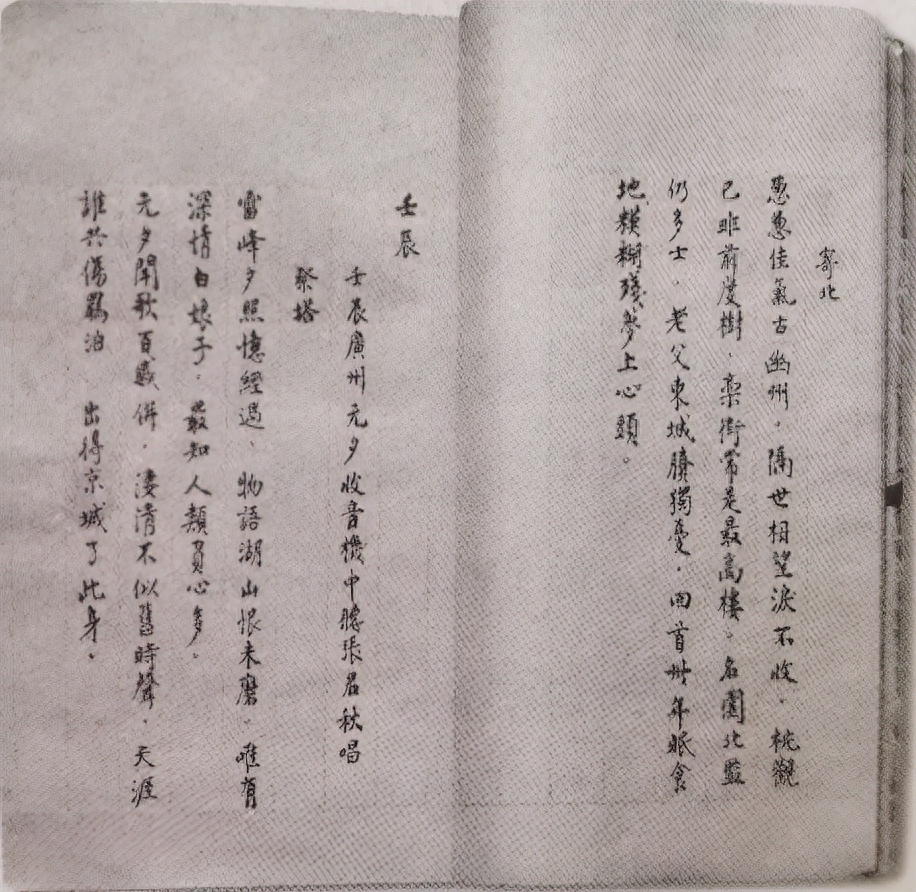 寄北
蔥蔥佳氣古幽州。隔世相望淚不收。桃觀
已非前度樹、槀街常是最高樓。名園北監
仍多士。老父東城賸獨憂。回首卅年眠食
地模糊殘夢上心頭。
壬辰
壬辰廣州元夕收音機中聽張君秋唱
祭塔
雷峰夕照憶經過、物語湖山恨未磨。唯有
深情白娘子。最知人類負心多。
元夕聞歌百感併。淒清不似舊時聲。天涯
誰共傷羈泊 出得京城了此身。